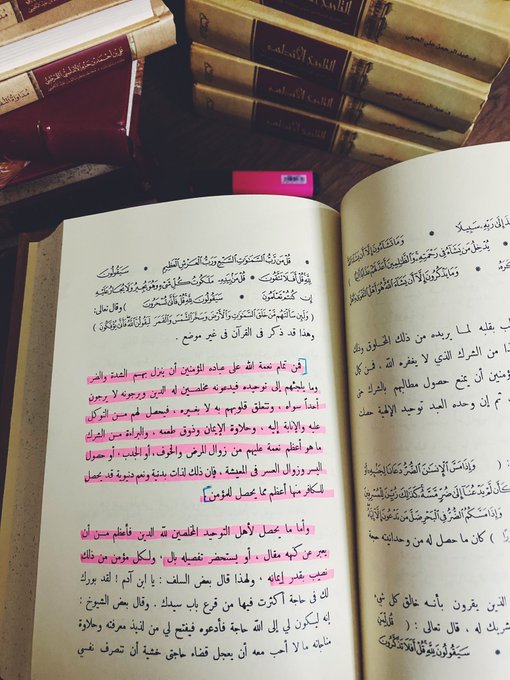 علي بن أحمد بن حزم الأندلسي القرطبي
د. عبدالرحمن علي الحجي
قُلْ مَن رَّبُّ السَّمَاوَاتِ السَّبْعِ وَرَبُّ الْعَرْشِ الْعَظِيمِ • سَيَقُولُونَ
لِلَّهِ قُلْ أَفَلَا تَتَّقُونَ • قُلْ مَنْ بِيَدِهِ مَلَكُوتُ كُلِّ شَيْءٍ وَهُوَ يُجِيرُ وَلَا يُجَارُ عَلَيْهِ
إِن كُنتُمْ تَعْلَمُونَ • سَيَقُولُونَ لِلَّهِ قُلْ فَأَنَّى تُسْحَرُونَ ) وقال تعالى:
( وَلَئِن سَأَلْتَهُم مَّنْ خَلَقَ السَّمَاوَاتِ وَالْأَرْضَ وَسَخَّرَ الشَّمْسَ وَالْقَمَرَ لَيَقُولُنَّ اللَّهُ فَأَنَّى يُؤْفَكُونَ )
وهذا قد ذكر فى القرآن فى غير موضع .
[فمن تمام نعمة الله على عباده المؤمنين أن ينزل بهم الشدة والضر
وما يلجئهم إلى توحيده فيدعونه مخلصين له الدين ويرجونه لا يرجون
أحداً سواه ، وتتعلق قلوبهم به لا بغيره ، فيحصل لهم من التوكل
عليه والإنابة إليه ، وحلاوة الإيمان وذوق طعمه ، والبراءة من الشرك
ما هو أعظم نعمة عليهم من زوال المرض والخوف ، أو الجدب ، أو حصول
اليسر وزوال العسر فى المعيشة . فإن ذلك لذات بدنية ونعم دنيوية قد يحصل
للكافر منها أعظم مما يحصل للمؤمن]
وأما ما يحصل لأهل التوحيد المخلصين لله الدين فأعظم من أن
يعبر عن كنهه مقال ، أو يستحضر تفصيله بال ، ولكل مؤمن من ذلك
نصيب بقدر إيمانه ، ولهذا قال بعض السلف : يا ابن آدم ! لقد بورك
لك فى حاجة أكثرت فيها من قرع باب سيدك . وقال بعض الشيوخ :
إنه ليكون لي إلى الله حاجة فأدعوه فيفتح لي من لذيذ معرفته وحلاوة
مناجاته ما لا أحب معه أن يعجل قضاء حاجتي خشية أن تنصرف نفسي
إِلَى رَبِّهِ سَبِيلًا
وَمَا تَشَاءُونَ إِلَّا أَن يَشَاءَ
يُدْخِلُ مَن يَشَاءُ فِي رَحْمَتِهِ وَالظَّالِمِينَ أَعَدَّ لَهُمْ عَذَابًا
وَمَا يَذْكُرُونَ إِلَّا أَن يَشَاءَ اللَّهُ هُوَ أَهْلُ التَّقْوَى
بقلبه لما يريده من ذلك المخلوق
من الشرك الذي لا يغفره الله . فمن كمال
أن يمنع حصول مطالبهم بالشرك
ثم إن وحده العبد توحيد الإلهية حصلت
وَإِذَا مَسَّ الْإِنسَانَ الضُّرُّ دَعَانَا لِجَنبِهِ أَوْ
كَأَن لَّمْ يَدْعُنَا إِلَى ضُرٍّ مَّسَّهُ كَذَلِكَ زُيِّنَ لِلْمُسْرِفِينَ
وَإِذَا مَسَّكُمُ الضُّرُّ فِي الْبَحْرِ ضَلَّ مَن تَدْعُونَ إِلَّا إِيَّاهُ
) كان ما حصل له من وحدانيته حجة
الذين يقرون بأنه خالق كل شيء
شريك له ، قال تعالى : ( قُل لِّمَنِ
سَيَقُولُونَ لِلَّهِ قُلْ أَفَلَا تَذَكَّرُونَ